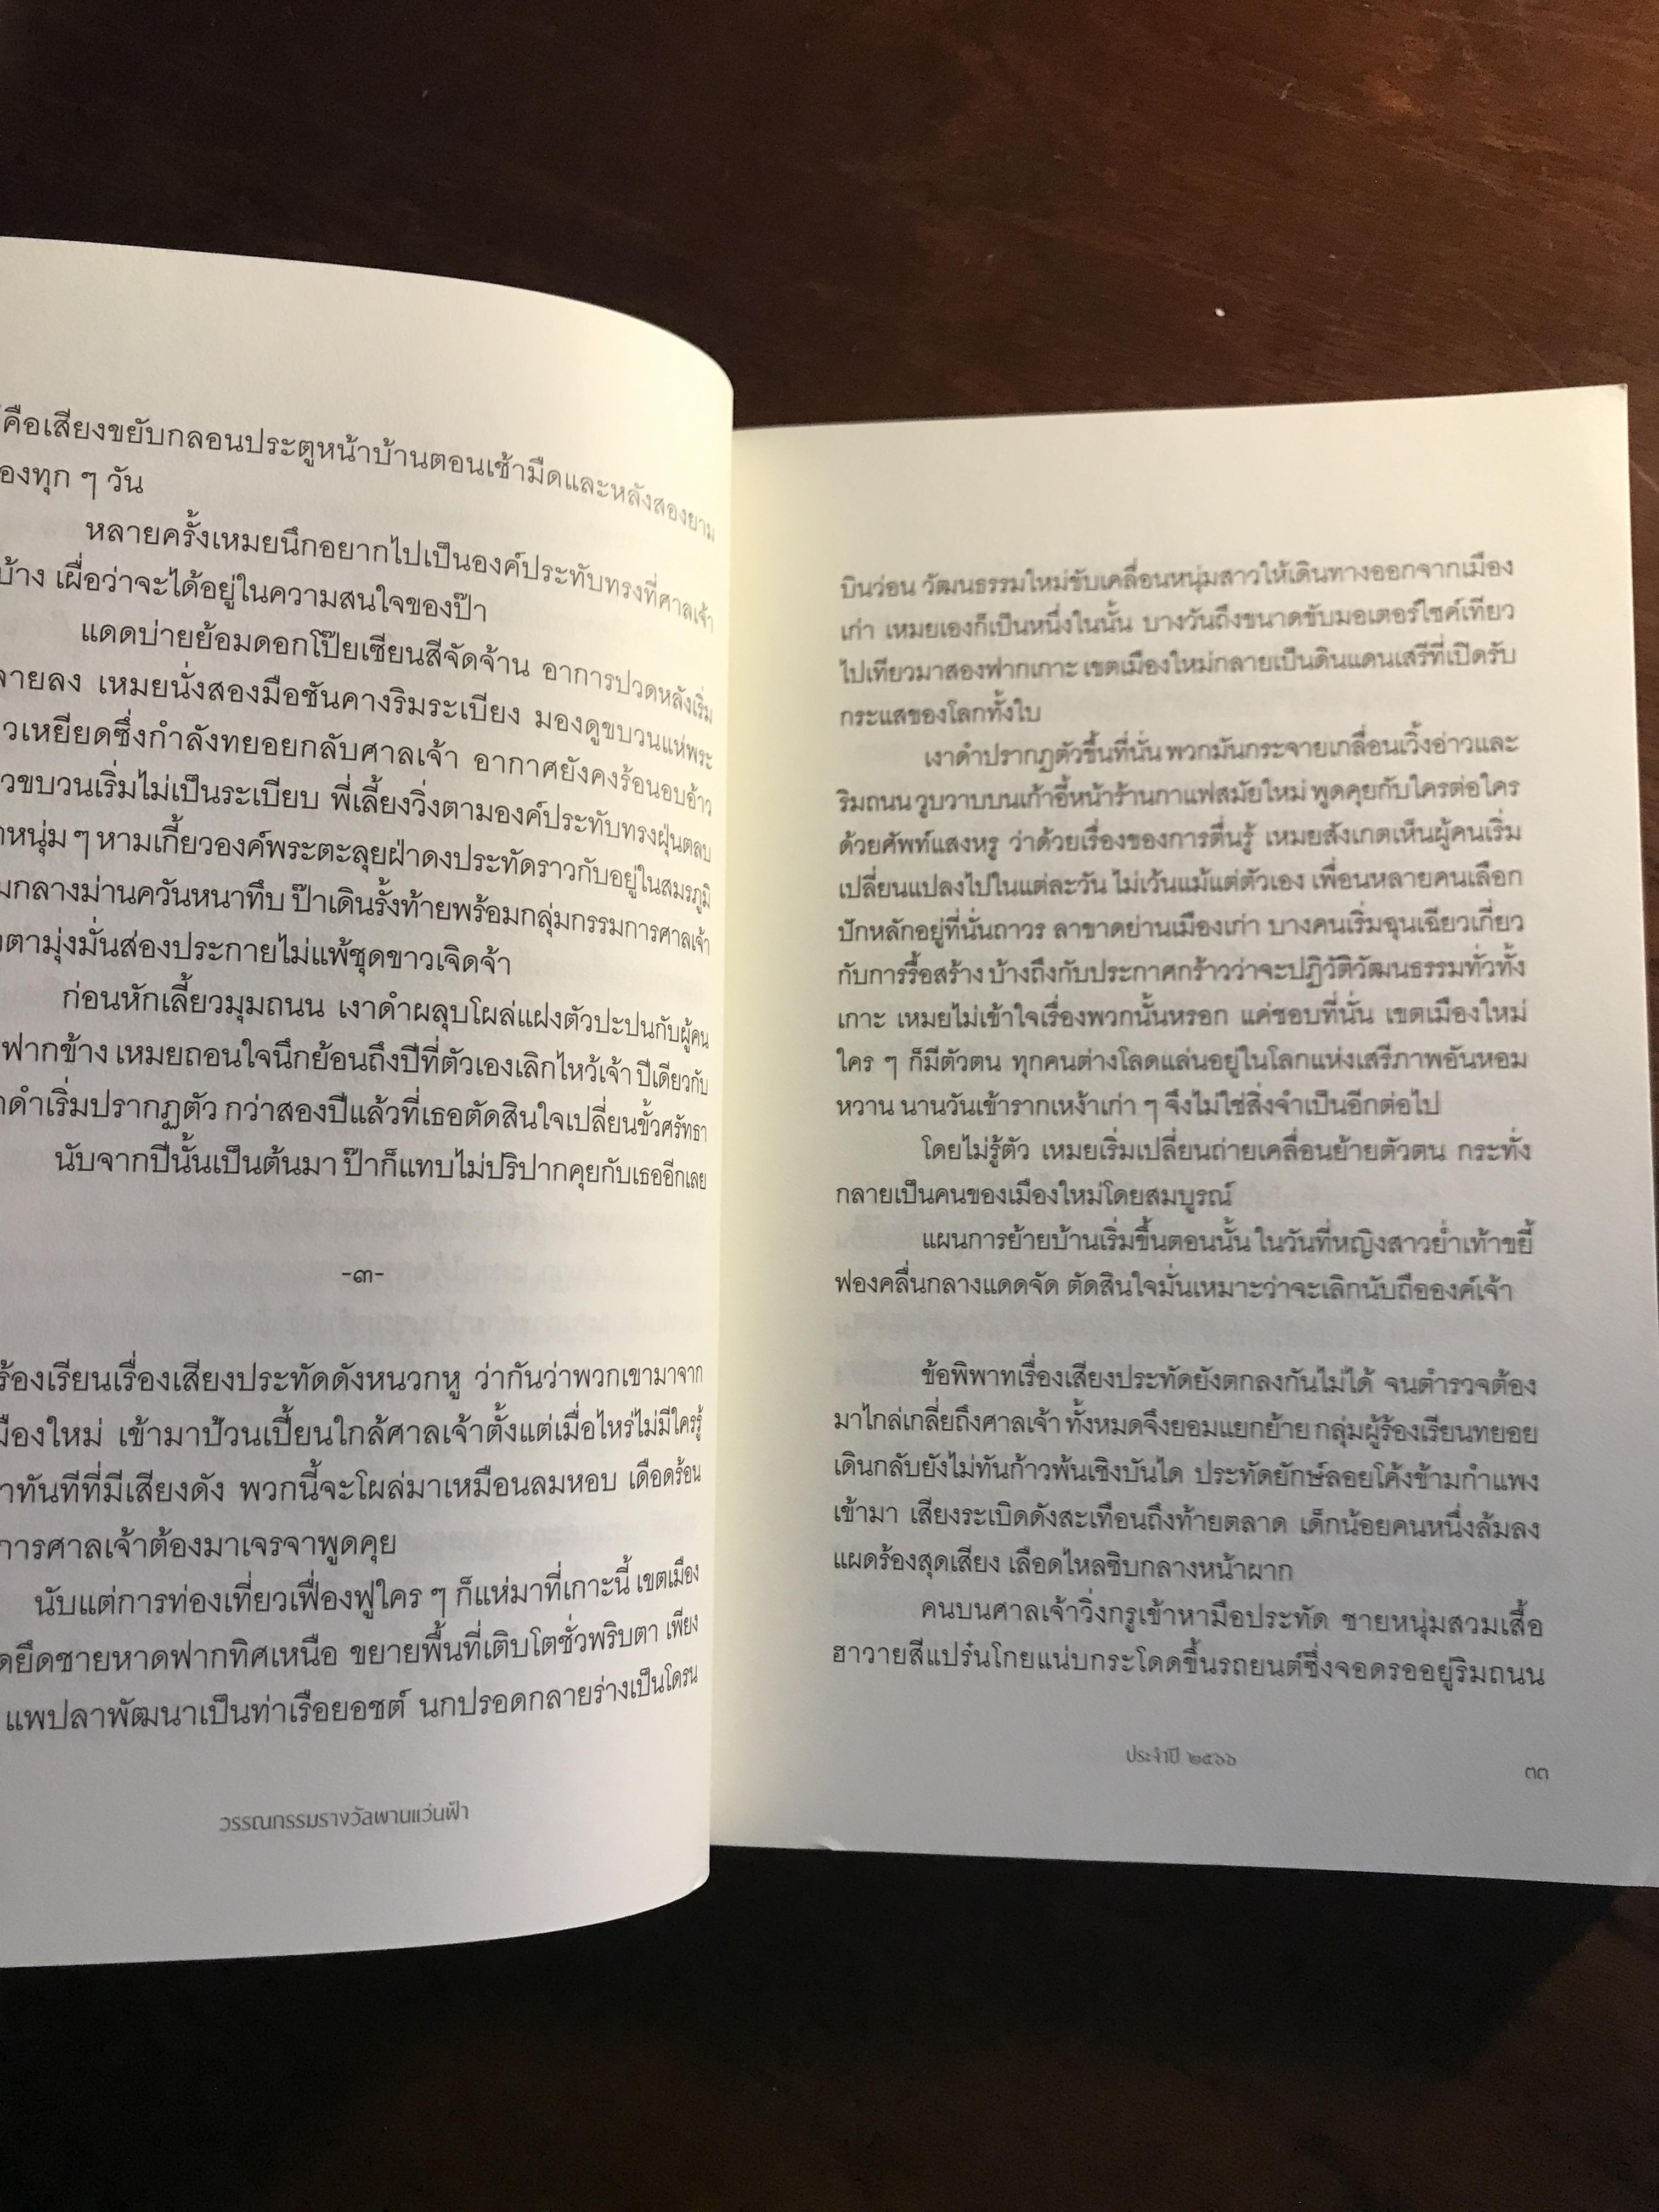 คือเสียงขยับกลอนประตูหน้าบ้านตอนเช้ามืดและหลังสองยาม
องทุก ๆ วัน
หลายครั้งเหมยนึกอยากไปเป็นองค์ประทับทรงที่ศาลเจ้า
บ้าง เผื่อว่าจะได้อยู่ในความสนใจของป๊า
แดดบ่ายย้อมดอกโป๊ยเซียนสีจัดจ้าน อาการปวดหลังเริ่ม
ลายลง เหมยนั่งสองมือชันคางริมระเบียง มองดูขบวนแห่พระ
วเหยียดซึ่งกำลังทยอยกลับศาลเจ้า อากาศยังคงร้อนอบอ้าว
วขบวนเริ่มไม่เป็นระเบียบ พี่เลี้ยงวิ่งตามองค์ประทับทรงฝุ่นตลบ
หนุ่ม ๆ หามเกี้ยวองค์พระตะลุยฝ่าดงประทัดราวกับอยู่ในสมรภูมิ
มกลางม่านควันหนาทึบ ป๊าเดินรั้งท้ายพร้อมกลุ่มกรรมการศาลเจ้า
ตามุ่งมั่นส่องประกายไม่แพ้ชุดขาวเจิดจ้า
ก่อนหักเลี้ยวมุมถนน เงาดำผลุบโผล่แฝงตัวปะปนกับผู้คน
ฟากข้าง เหมยถอนใจนึกย้อนถึงปีที่ตัวเองเลิกไหว้เจ้า ปีเดียวกับ
ดำเริ่มปรากฏตัว กว่าสองปีแล้วที่เธอตัดสินใจเปลี่ยนขั้วศรัทธา
นับจากปีนั้นเป็นต้นมา ป๊าก็แทบไม่ปริปากคุยกับเธออีกเลย
-๓-
ร้องเรียนเรื่องเสียงประทัดดังหนวกหู ว่ากันว่าพวกเขามาจาก
มืองใหม่ เข้ามาป้วนเปี้ยนใกล้ศาลเจ้าตั้งแต่เมื่อไหร่ไม่มีใครรู้
าทันทีที่มีเสียงดัง พวกนี้จะโผล่มาเหมือนลมหอบ เดือดร้อน
การศาลเจ้าต้องมาเจรจาพูดคุย
นับแต่การท่องเที่ยวเฟื่องฟูใคร ๆ ก็แห่มาที่เกาะนี้ เขตเมือง
ดยึดชายหาดฟากทิศเหนือ ขยายพื้นที่เติบโตชั่วพริบตา เพียง
แพปลาพัฒนาเป็นท่าเรือยอชต์ นกปรอดกลายร่างเป็นโดรน
วรรณกรรมรางวัลพานแว่นฟ้า
บินว่อน วัฒนธรรมใหม่ขับเคลื่อนหนุ่มสาวให้เดินทางออกจากเมือง
เก่า เหมยเองก็เป็นหนึ่งในนั้น บางวันถึงขนาดขับมอเตอร์ไซค์เทียว
ไปเทียวมาสองฟากเกาะ เขตเมืองใหม่กลายเป็นดินแดนเสรีที่เปิดรับ
กระแสของโลกทั้งใบ
เงาดำปรากฏตัวขึ้นที่นั่น พวกมันกระจายเกลื่อนเวิ้งอ่าวและ
ริมถนน วูบวาบบนเก้าอี้หน้าร้านกาแฟสมัยใหม่ พูดคุยกับใครต่อใคร
ด้วยศัพท์แสงหรู ว่าด้วยเรื่องของการตื่นรู้ เหมยสังเกตเห็นผู้คนเริ่ม
เปลี่ยนแปลงไปในแต่ละวัน ไม่เว้นแม้แต่ตัวเอง เพื่อนหลายคนเลือก
ปักหลักอยู่ที่นั่นถาวร ลาขาดย่านเมืองเก่า บางคนเริ่มฉุนเฉียวเกี่ยว
กับการรื้อสร้าง บ้างถึงกับประกาศกร้าวว่าจะปฏิวัติวัฒนธรรมทั่วทั้ง
เกาะ เหมยไม่เข้าใจเรื่องพวกนั้นหรอก แค่ชอบที่นั่น เขตเมืองใหม่
ใคร ๆ ก็มีตัวตน ทุกคนต่างโลดแล่นอยู่ในโลกแห่งเสรีภาพอันหอม
หวาน นานวันเข้ารากเหง้าเก่า ๆ จึงไม่ใช่สิ่งจำเป็นอีกต่อไป
โดยไม่รู้ตัว เหมยเริ่มเปลี่ยนถ่ายเคลื่อนย้ายตัวตน กระทั่ง
กลายเป็นคนของเมืองใหม่โดยสมบูรณ์
แผนการย้ายบ้านเริ่มขึ้นตอนนั้น ในวันที่หญิงสาวย่ำเท้าขยี้
ฟองคลื่นกลางแดดจัด ตัดสินใจมั่นเหมาะว่าจะเลิกนับถือองค์เจ้า
ข้อพิพาทเรื่องเสียงประทัดยังตกลงกันไม่ได้ จนตำรวจต้อง
มาไกล่เกลี่ยถึงศาลเจ้า ทั้งหมดจึงยอมแยกย้าย กลุ่มผู้ร้องเรียนทยอย
เดินกลับยังไม่ทันก้าวพ้นเชิงบันได ประทัดยักษ์ลอยโค้งข้ามกำแพง
เข้ามา เสียงระเบิดดังสะเทือนถึงท้ายตลาด เด็กน้อยคนหนึ่งล้มลง
แผดร้องสุดเสียง เลือดไหลซิบกลางหน้าผาก
คนบนศาลเจ้าวิ่งกรูเข้าหามือประทัด ชายหนุ่มสวมเสื้อ
ฮาวายสีแปร๋นโกยแน่บกระโดดขึ้นรถยนต์ซึ่งจอดรออยู่ริมถนน
ประจำปี ๒๕๖๖
๓๓